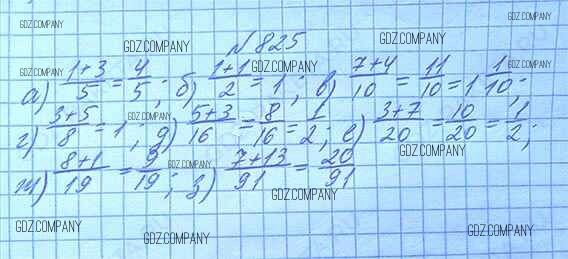 GDZ.COMPANY GDZ.COMPANY № 825 GDZ.COMPANY GDZ.COMPANY
GDZ.COMPANY GDZ.COMPANY GDZ.COMPANY
а) (1+3)/5 = 4/5; б) (1+1)/2 = 1; в) (7+4)/10 = 11/10 = 1 1/10;
GDZ.COMPANY GDZ.COMPANY
г) (3+5)/8 = 1; д) (5+3)/16 = 8/16 = 1/2; е) (3+7)/20 = 10/20 = 1/2;
GDZ.COMPANY GDZ.COMPANY
ж) (8+1)/19 = 9/19; з) (7+13)/91 = 20/91
GDZ.COMPANY
GDZ.COMPANY GDZ.COMPANY GDZ.COMPANY